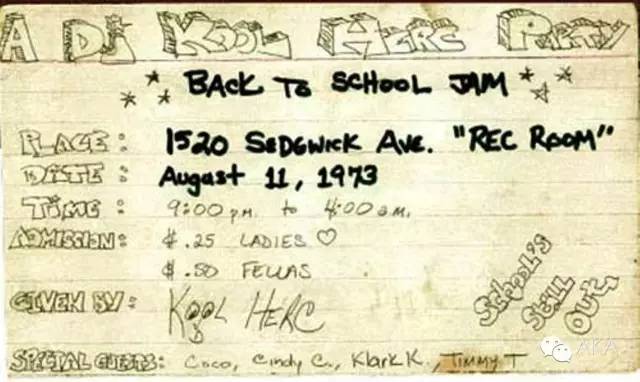 A DJ KOOL HERC PARTY
BACK TO SCHOOL JAM
PLACE: 1520 SEDGWICK AVE. "REC ROOM"
DATE: August 11, 1973
TIME: 9:00 p.m. to 4:00 a.m.
ADMISSION: $.25 LADIES ♡
$.50 FELLAS
GIVEN BY: KOOL HERC
SCHOOL'S
STILL
OUT.
SPECIAL GUESTS: Coco, Cindy C., Klark K., TIMMY T
AKA